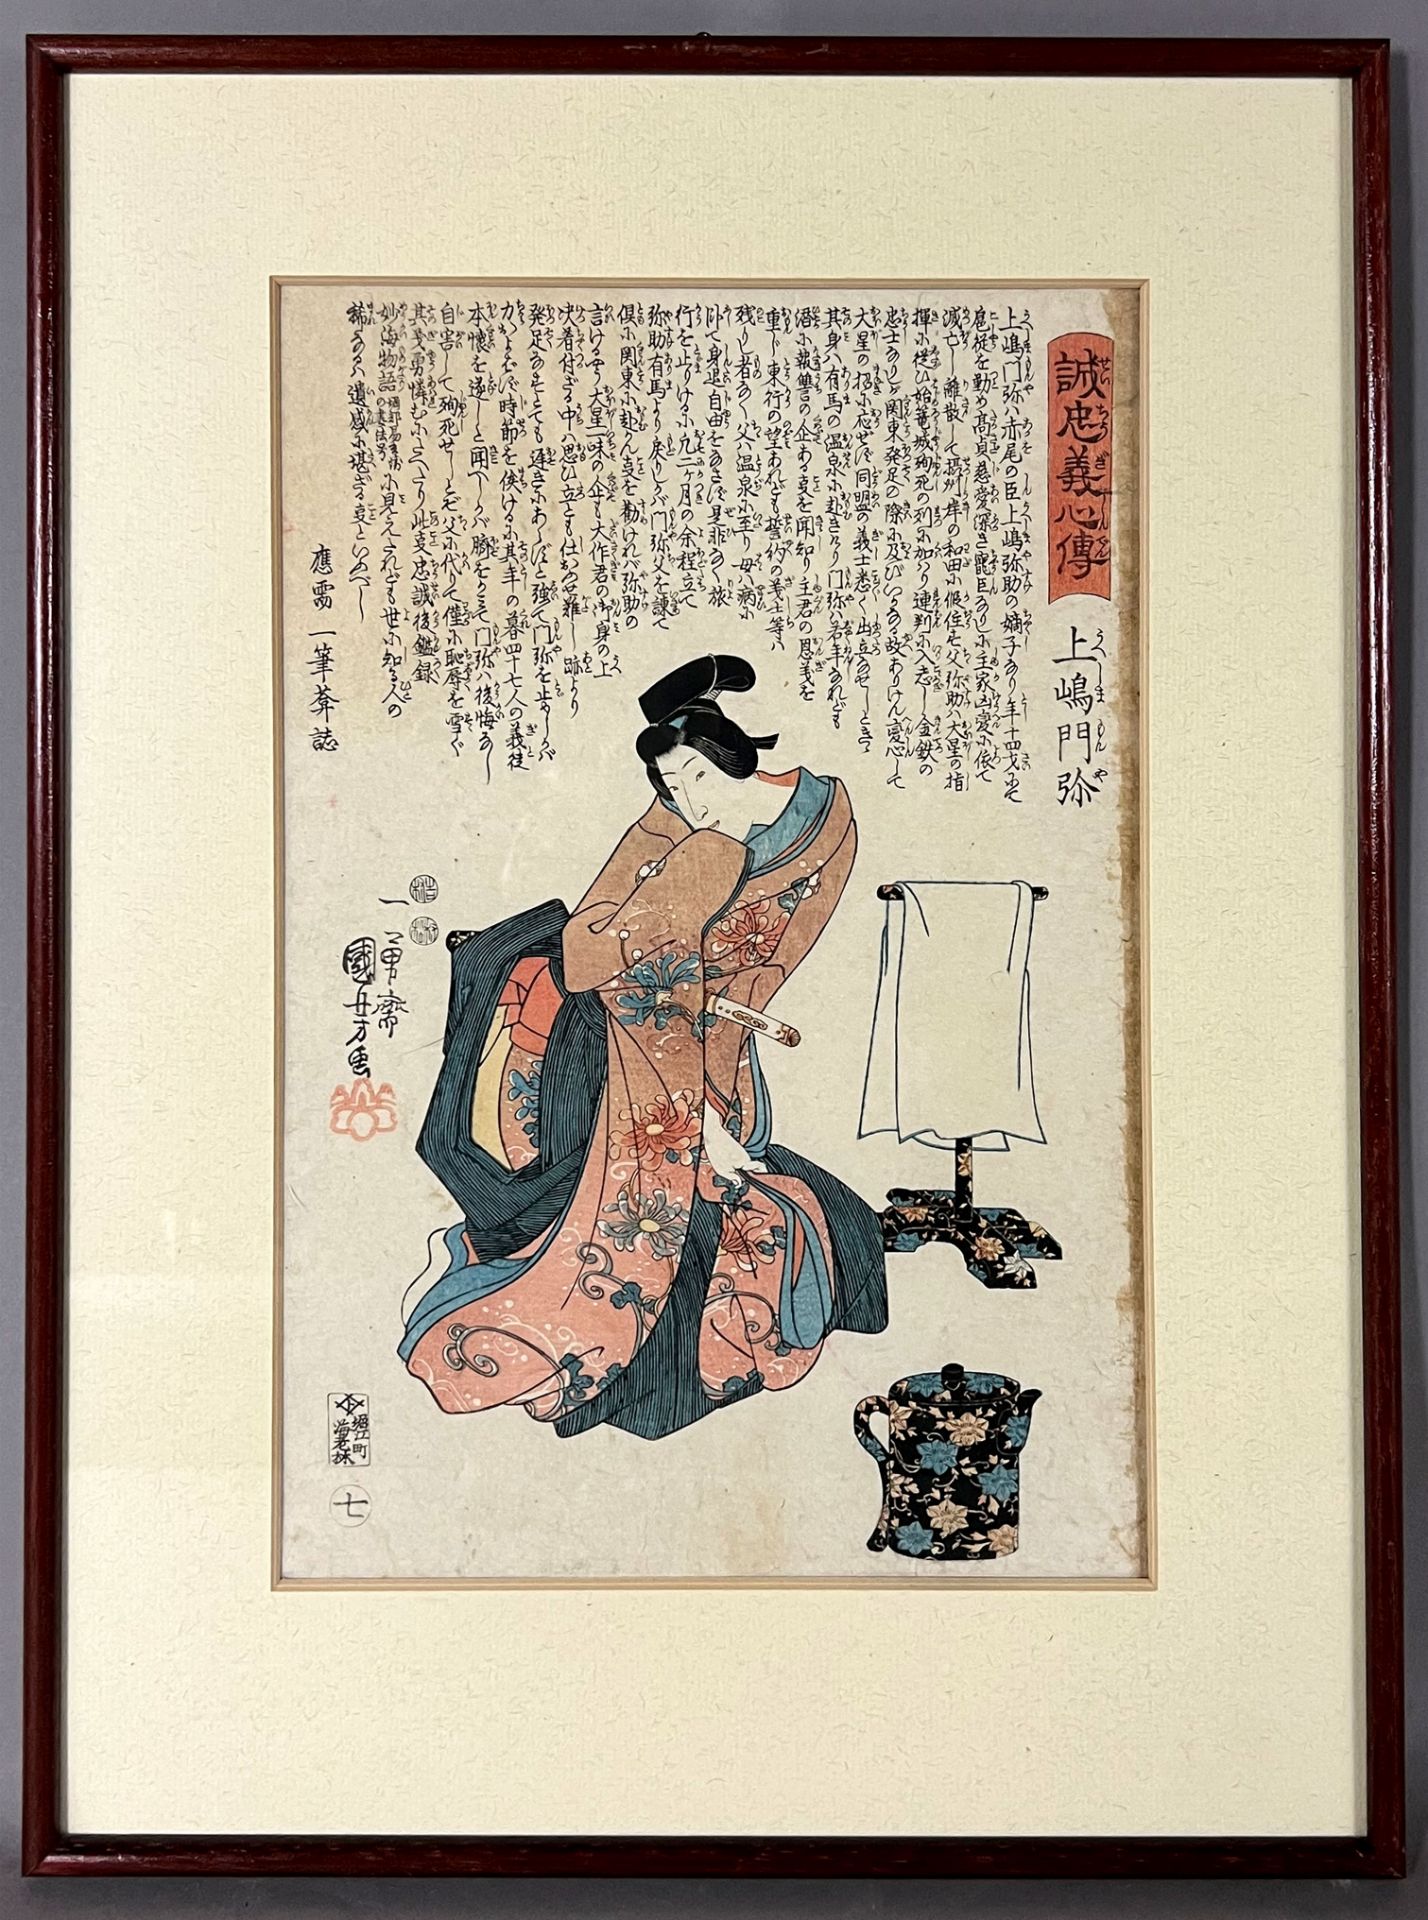 誠忠義心傳
せいちうぎしんでん
上嶋門弥
うへしまもんや
上嶋門弥ハ赤尾の臣上嶋弥助の嫡子なり年十四才にて
扈従を勤め髙貞慈愛深き寵臣なりしに主家凶変に依て
滅亡し離散して摂州岸の和田に仮住す父弥助ハ大星の指
揮に従ひ始篭城殉死の列に加ハり連判に入志し金鉄の
忠士なりしが関東発足の際に及びいかなる故ありけん変心して
大星の招に応せず同盟の義士悉く出立なせしときハ
其身ハ有馬の温泉に赴きけり門弥ハ若年なれども
潜に報讐の企ある変を聞知り主君の恩義を
重んじ東行の望あれども誓約の義士等ハ
残りし者なく父ハ温泉に至り母ハ病に
卧て身退自由をなさず是非なく旅
行を止りけるに凡二ヶ月の余程立て
弥助有馬より戻りしかバ門弥父を諌て
倶に関東に赴かん変を勧けれバ弥助の
言けるやう大星一味の企も大作君の御身の上
决着付ざる中ハ思ひ立とも仕おふせ難し跡より
発足なすとても遅きにあらずと強て門弥を止めしかバ
力およばず時節を俟けるに其年の暮四十七人の義徒
本懐を遂しと聞へしかバ臍をかみて門弥ハ後悔なし
自害して殉死せしとぞ父に代りて僅に恥辱を雪ぐ
其義勇憐むにたへたり此変忠誠後鑑録
妙海物語に見えたれども世に知る人の
稀なるハ遺感に堪ざる変といふべし
應需 一筆菴誌
一勇齋
國芳画
堀江町
海老林
七